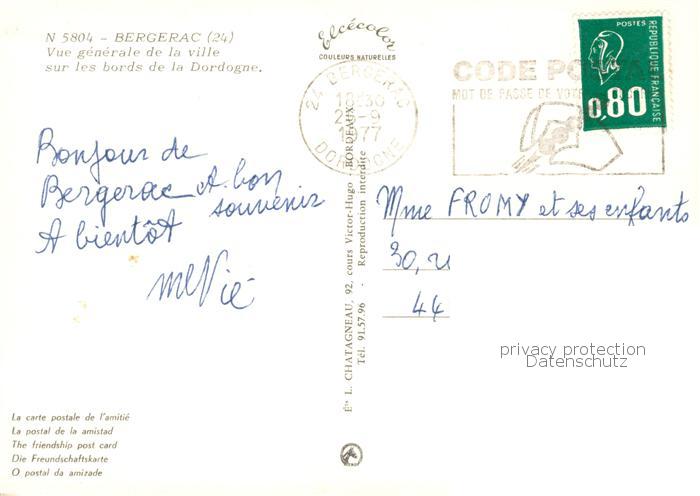 N 5804 - BERGERAC (24)
Vue générale de la ville
sur les bords de la Dordogne.
Elcécolor
COULEURS NATURELLES
24 BERGERAC
18-30
1977
DORDOGNE
CODE POSTAL
MOT DE PASSE DE VOT
POSTES
REPUBLIQUE FRANÇAISE
0,80
Bonjour de
Bergerac et bon
souvenir
A bientôt
Mme FROMY et ses enfants
30,
44
Éts L. CHATAGNEAU, 92, cours Victor-Hugo BORDEAUX
Tél. 91.57.96 - Reproduction interdite
privacy protection
Datenschutz
La carte postale de l'amitié
La postal de la amistad
The friendship post card
Die Freundschaftskarte
O postal da amizade